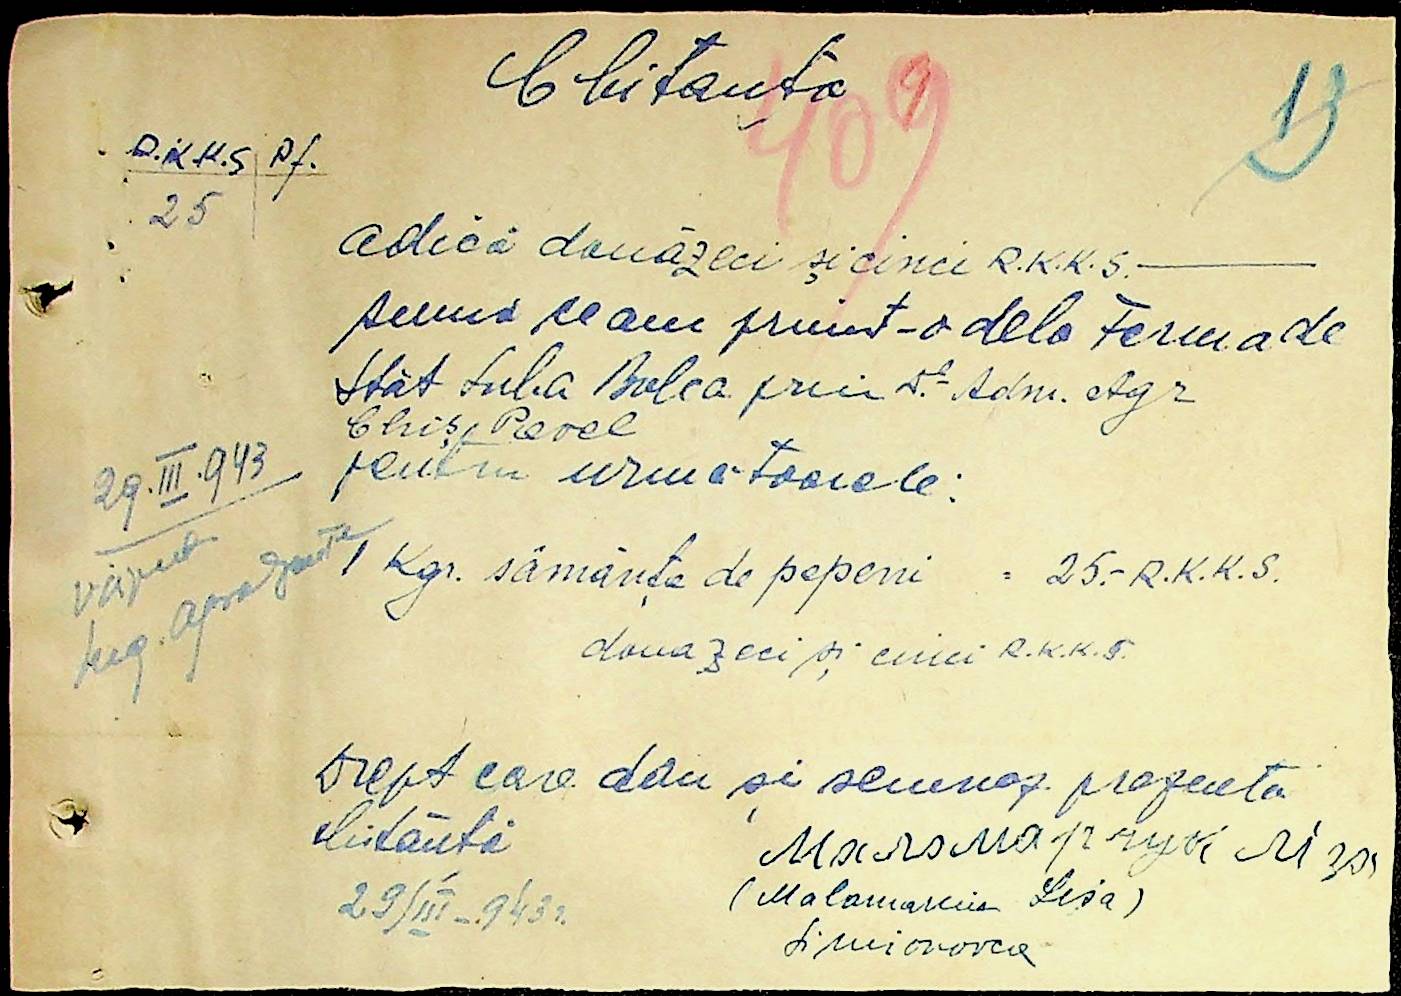 Chitanță
409
13
R.K.K.S. Pf.
25
adică douăzeci și cinci R.K.K.S.
suma ce am primit-o dela Ferma de
Stat Suha Balca prin D-l Adm. Agr
Chiș Pavel
pentru urmatoarele:
29.III.943
văzut
Ing. agr.
1 Kgr. sămânță de pepeni = 25.- R.K.K.S.
douazeci și cinci R.K.K.S.
Drept care dau și semnez prezenta
chitanță
29/III-943.
(Malamarciuc Lisa)
Simionovca